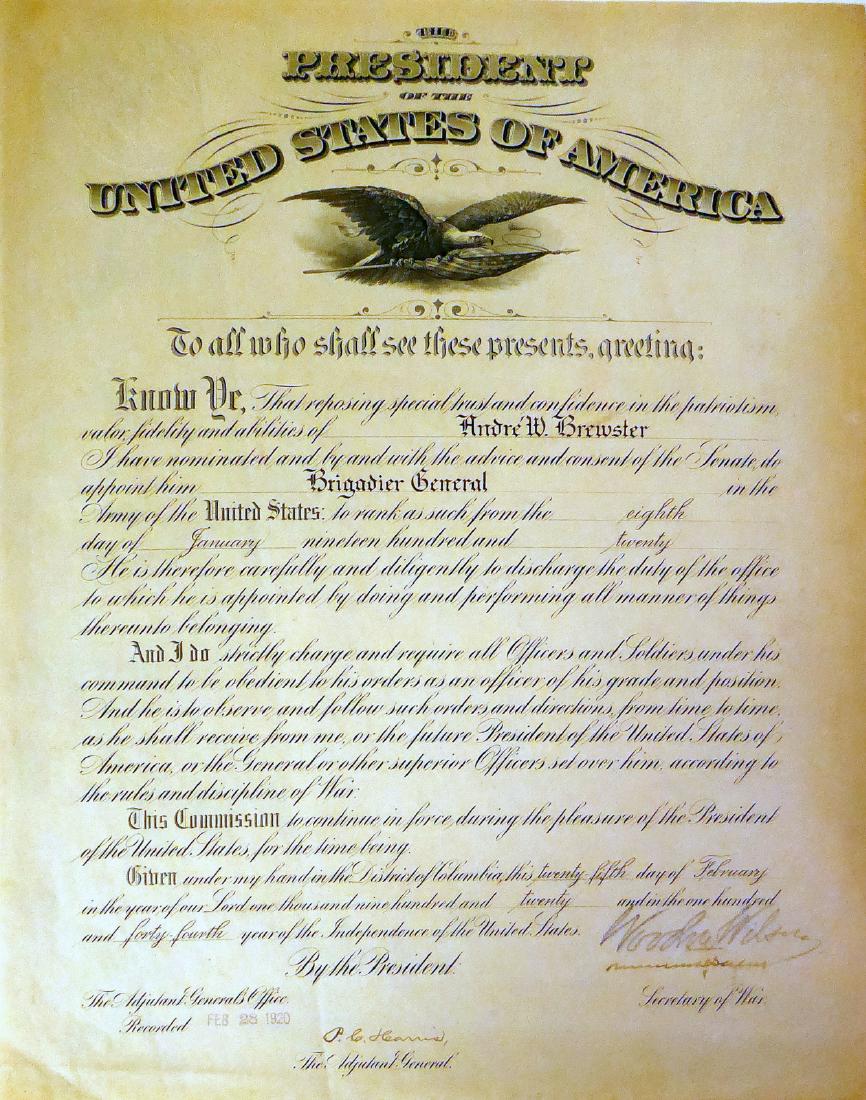 THE
PRESIDENT
OF THE
UNITED STATES OF AMERICA
To all who shall see these presents, greeting:
Know Ye, That reposing special trust and confidence in the patriotism,
valor, fidelity and abilities of André W. Brewster
I have nominated and, by and with the advice and consent of the Senate, do
appoint him Brigadier General in the
Army of the United States: to rank as such from the eighth
day of January nineteen hundred and twenty
He is therefore carefully and diligently to discharge the duty of the office
to which he is appointed by doing and performing all manner of things
thereunto belonging.
And I do strictly charge and require all Officers and Soldiers under his
command to be obedient to his orders as an officer of his grade and position.
And he is to observe and follow such orders and directions, from time to time,
as he shall receive from me, or the future President of the United States of
America, or the General or other superior Officers set over him, according to
the rules and discipline of War.
This Commission to continue in force during the pleasure of the President
of the United States, for the time being.
Given under my hand in the District of Columbia, this twenty-fifth day of February
in the year of our Lord one thousand nine hundred and twenty and in the one hundred
and forty-fourth year of the Independence of the United States.
Woodrow Wilson
By the President:
The Adjutant General's Office.
Secretary of War.
Recorded FEB 28 1920
P. C. Harris,
The Adjutant General.